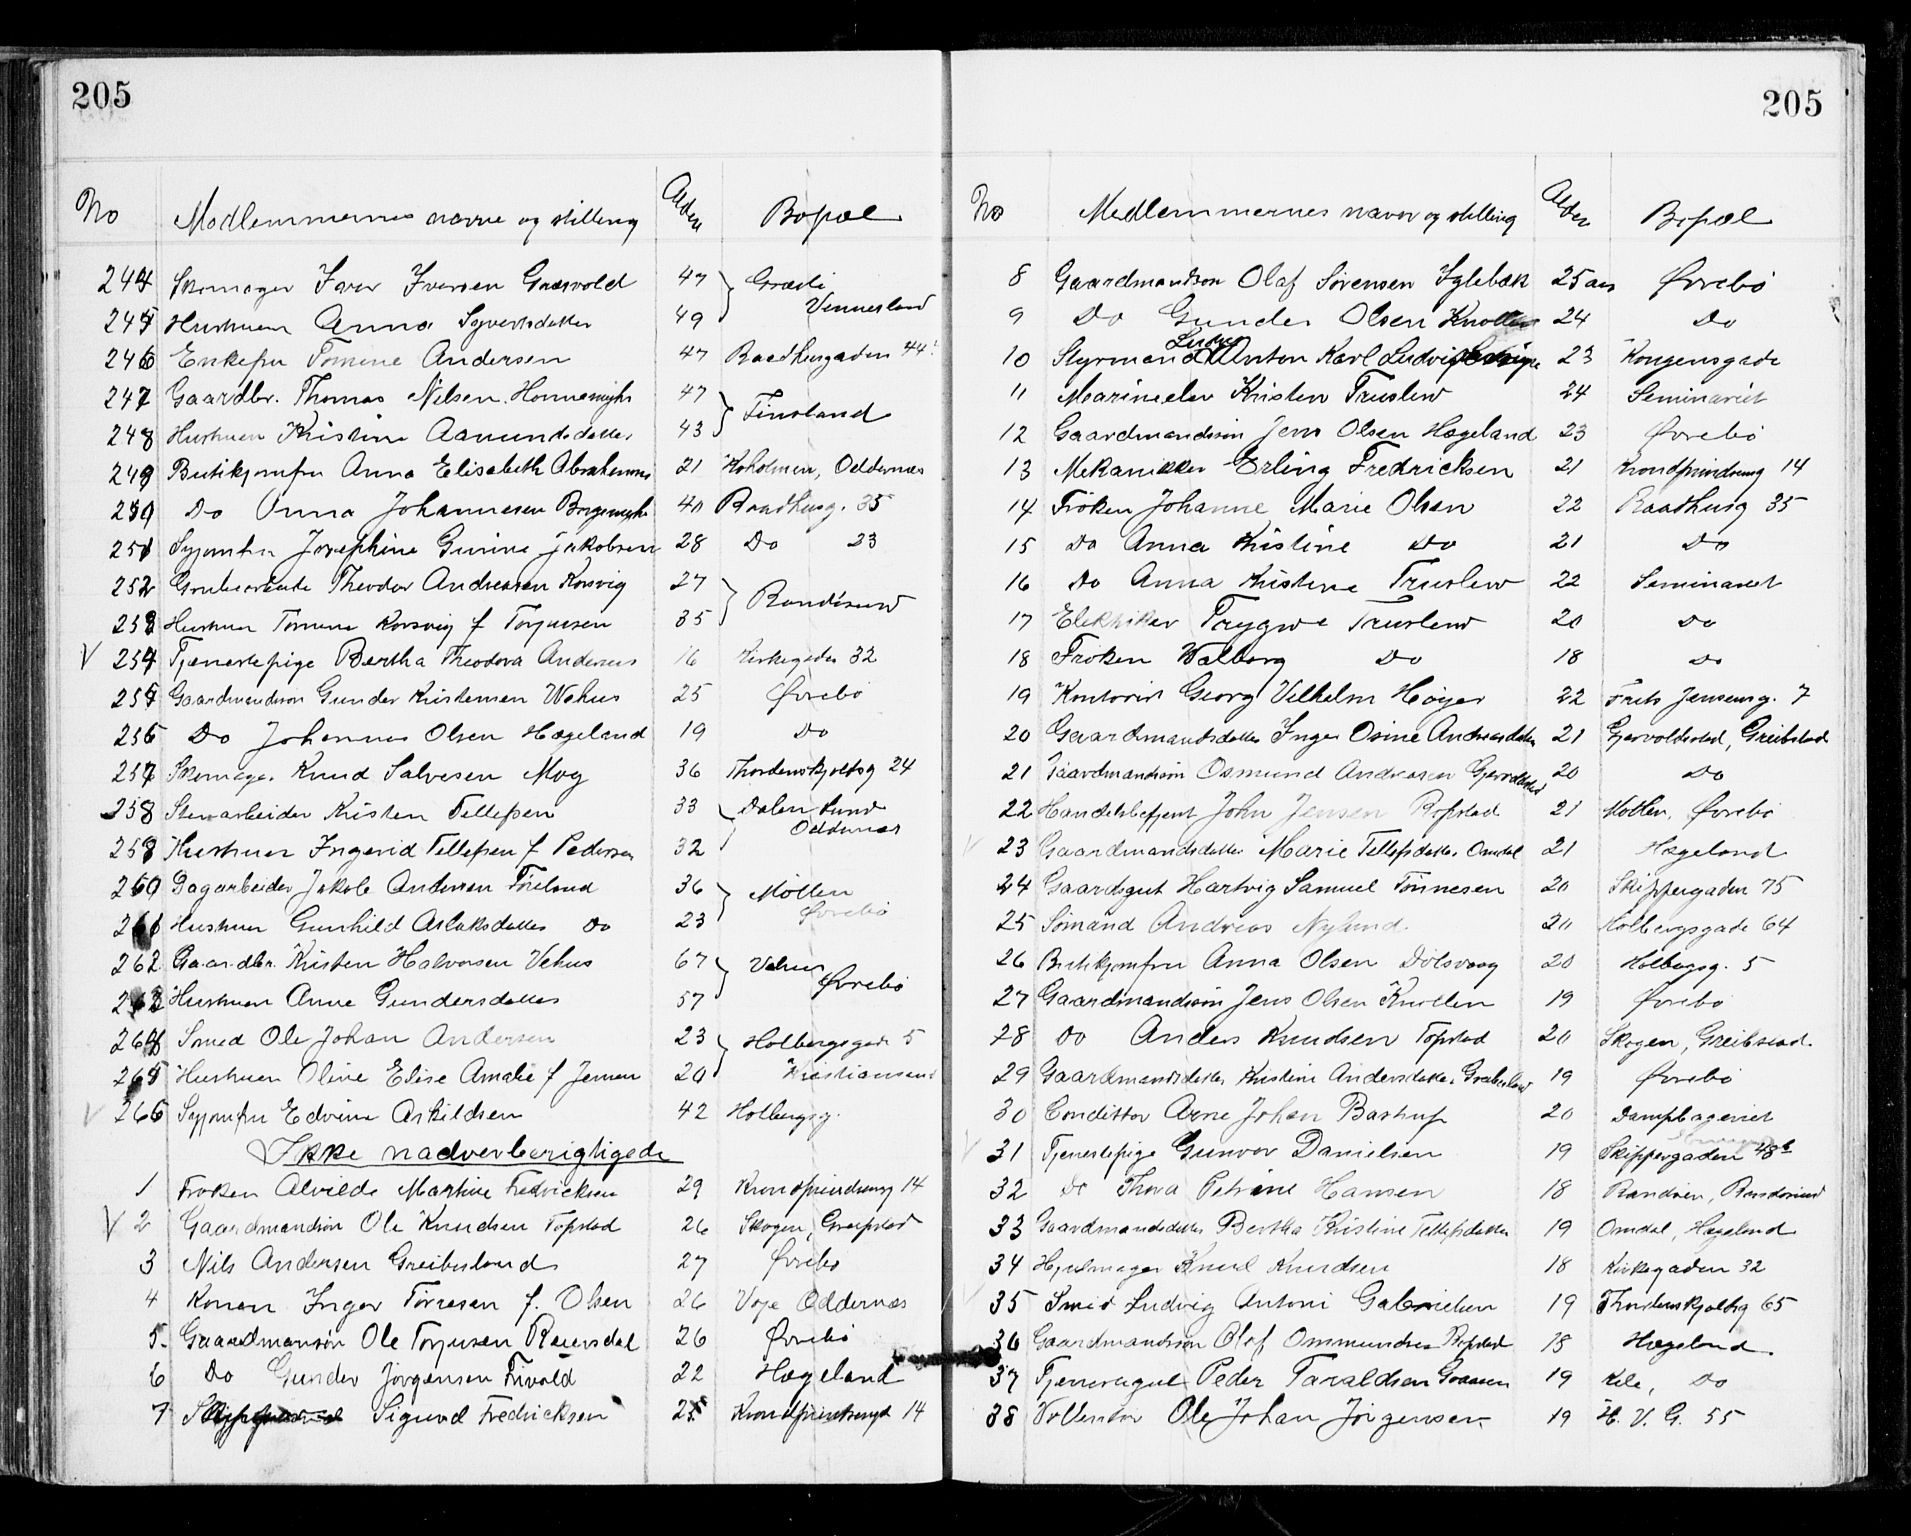 205
No Medlemmernes navne og stilling Alder Bopæl
244 Skomager Iver Iversen Græsvold 47 Græsli
245 Hustruen Anna Syvertsdatter 49 Vennesland
246 Enkefru Tomine Andersen 47 Raadhusgaden 44
247 Gaardbr. Thomas Nilsen Honnemyhr 47 Finsland
248 Hustruen Kristine Aanundsdatter 43
249 Butikjomfru Anna Elisabeth Abrahamsen 21 Koholmen, Oddernæs
250 Do Anna Johannesen Borgemyhr 40 Raadhusg. 35
251 Syjomfru Josephine Gurine Jakobsen 28 Do 23
252 Grubearbeide Theodor Andreasen Korsvig 27 Randøsund
253 Hustruen Tomine Korsvig f Torjusen 35
V 254 Tjenestepige Bertha Theodora Andersen 16 Kirkegaden 32
255 Gaardmandson Gunder Kristensen Wehus 25 Øvrebø
256 Do Johannes Olsen Hægeland 19 Do
257 Skomager Knud Salvesen Moy 36 Thordenskjoldsg 24
258 Stenarbeider Kristen Tellefsen 33 Dalen Lund
Oddernæs
259 Hustruen Ingerid Tellefsen f Pedersen 32
260 Dagarbeider Jakob Andersen Fiieland 36 Mollen
261 Hustruen Gunhild Aslaksdatter Do 23 Øvrebø
262 Gaardbr. Kristen Halvorsen Vehus 67 Vehus
263 Hustruen Anne Gundersdatter 57 Øvrebø
264 Smed Ole Johan Andersen 23 Holbergsgade 5
265 Hustruen Oline Elise Amalie f Jensen 20 Kristiansand
V 266 Syjomfru Edvine Askildsen 42 Holbergsg.
Ikke nadverberigtigede
1 Frøken Alvilde Martine Fredricksen 29 Krondprindseng 14
V 2 Gaardmandsøn Ole Knudsen Topstad 26 Skogen, Greipstad
3 Nils Andersen Greibesland 27 Øvrebø
4 Konen Inger Torresen f. Olsen 26 Voje Oddernæs
5. Gaardmansøn Ole Torjusen Reiersdal 26 Øvrebø
6 Do Gunder Jörgensen Frivold 22 Hægeland
7 Sigurd Fredricksen 25 Krondprinsensgt 14
205
No Medlemmernes navne og stilling Alder Bopæl
8 Gaardmandson Olaf Sørensen Iglebæk 25 aar Øvrebø
9 Do Gunder Olsen Knotten 24 Do
10 Styrmand Anton Karl Ludvig 23 Kongensgade
11 Marineelev Kristen Truslew 24 Seminariet
12 Gaardmandsøn Jens Olsen Hægeland 23 Øvrebø
13 Mekaniker Erling Fredricksen 21 Krondprindseng 14
14 Frøken Johanne Marie Olsen 22 Raadhusg 35
15 Do Anna Kristine Do 21 Do
16 Do Anna Kristine Truslew 22 Seminariet
17 Elektriker Trygve Truslew 20 Do
18 Frøken Walborg Do 18 Do
19 Kontorist Georg Vilhelm Høyer 22 Frits Jensensg. 7
20 Gaardmandsdatter Inger Osine Andreasdatter 21 Gjervoldstad, Greibstad
21 Gaardmandsøn Osmund Andreasen Gjervoldstad 20 Do
22 Handelsbetjent John Jensen Ropstad 21 Mollen, Øvrebø
23 Gaardmandsdatter Marie Tellefsdatter Omdal 21 Hægeland
24 Gaardsgut Hartvig Samuel Tønnesen 20 Skippergaden 75
25 Sømand Andreas Nylund. 20 Holbergsgade 64
26 Butikjomfru Anna Olsen Dolsvaag 20 Holbergsg. 5
27 Gaardmandsøn Jens Olsen Knotten 19 Øvrebø
28 Do Anders Knudsen Topstad 20 Skogen, Greibstad.
29 Gaardmandsdatter Kristine Andersdatter Greibesland 19 Øvrebø
30 Conditor Arne Johan Bastrup 20 Dampbageriet
31 Tjenestepige Gunvor Danielsen 19 Skippergaden 48b
32 Do Thora Petrine Hansen 18 Randøen, Randøsund
33 Gaardmandsdatter Bertha Kristine Tellefsdatter 19 Omdal, Hægeland
34 Hjulmager Knud Knudsen 18 Kirkegaden 32
35 Smed Ludvig Antoni Gabrielsen 19 Thordenskjoldsg 65
36 Gaardmandsson Olaf Ommundsen Ropstad 18 Hægeland.
37 Tjenestegut Peder Taraldsen Graasen 19 Kile, Do
38 Volentør Ole Johan Jörgensen 19 H. V. G. 55